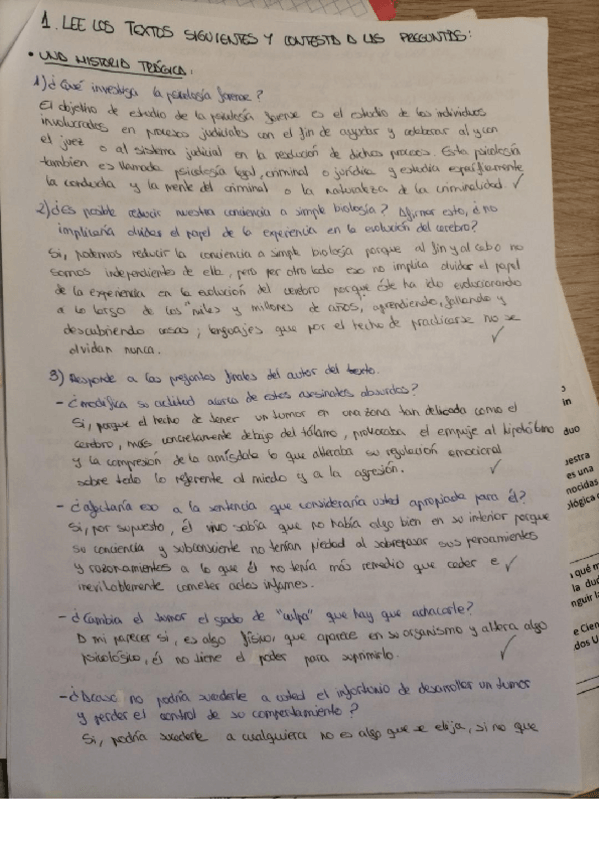 1. LEE LOS TEXTOS SIGUIENTES Y CONTESTA A LAS PREGUNTAS:
• UNA HISTORIA TRÁGICA.
1) ¿Qué investiga la psicología forense?
El objetivo de estudio de la psicología forense es el estudio de los individuos
involucrados en procesos judiciales con el fin de ayudar y colaborar al y con
el juez o al sistema judicial en la resolución de dichos procesos. Esta psicología
también es llamada psicología legal, criminal o jurídica y estudia específicamente
la conducta y la mente del criminal o la naturaleza de la criminalidad.
2) ¿Es posible reducir nuestra conciencia a simple biología? Afirmar esto, ¿no
implicaría olvidar el papel de la experiencia en la evolución del cerebro?
Si, podemos reducir la conciencia a simple biología porque al fin y al cabo no
somos independientes de ella, pero por otro lado eso no implica olvidar el papel
de la experiencia en la evolución del cerebro porque éste ha ido evolucionando
a lo largo de los "miles y millones de años, aprendiendo, fallando y
descubriendo cosas; lenguajes que por el hecho de practicarse no se
olvidan nunca.
3) Responde a las preguntas finales del autor del texto.
- ¿modifica su actitud acerca de estos asesinatos absurdos?
Si, porque el hecho de tener un tumor en una zona tan delicada como el
cerebro, más concretamente debajo del tálamo, provocaba el empuje al hipotálamo
y la compresión de la amísdala lo que alteraba su regulación emocional
sobre todo lo referente al miedo y a la agresión.
- ¿afectaría eso a la sentencia que consideraría usted apropiada para él?
Si, por supuesto, él sabía que no había algo bien en su interior porque
su conciencia y subconsciente no tenían piedad al sobrepasar sus pensamientos
y razonamientos a lo que él no tenía más remedio que ceder e
inevitablemente cometer actos infames.
- ¿Cambia el tumor el grado de "culpa" que hay que achacarle?
A mi parecer si, es algo físico, que aparece en su organismo y altera algo
psicológico, él no tiene el poder para suprimirlo.
- ¿Acaso no podría sucederle a usted el infortunio de desarrollar un tumor
y perder el control de su comportamiento?
Si, podría sucederle a cualquiera no es algo que se elija, si no que
in
duo
estra
es una
nocidas
ológica
qué m
la dud
nguir la
e Cien
dos U